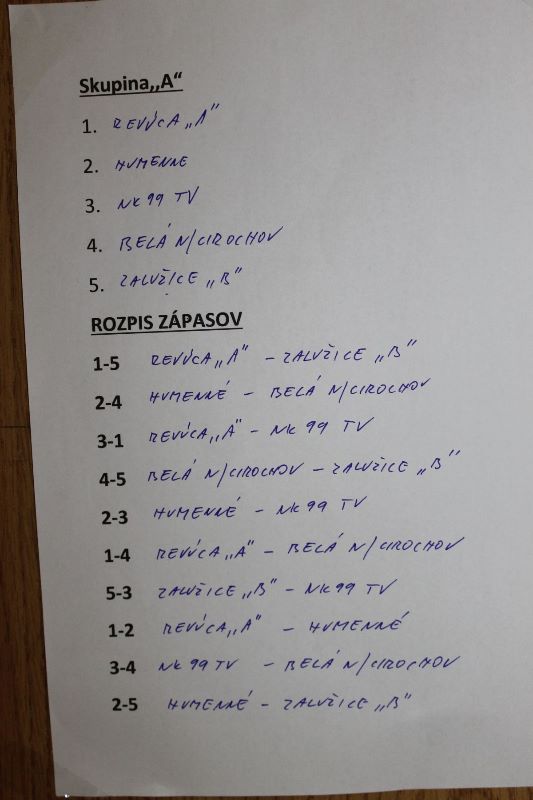 Skupina,,A“
1. REVÚCA „A"
2. HUMENNE
3. NK 99 TV
4. BELÁ N/CIROCHOV
5. ZALUŽICE „B"
ROZPIS ZÁPASOV
1-5 REVÚCA „A" - ZALUŽICE „B"
2-4 HUMENNÉ - BELÁ N/CIROCHOV
3-1 REVÚCA „A" - NK 99 TV
4-5 BELÁ N/CIROCHOV - ZALUŽICE „B"
2-3 HUMENNÉ - NK 99 TV
1-4 REVÚCA „A" - BELÁ N/CIROCHOV
5-3 ZALUŽICE „B" - NK 99 TV
1-2 REVÚCA „A" - HUMENNÉ
3-4 NK 99 TV - BELÁ N/CIROCHOV
2-5 HUMENNÉ - ZALUŽICE „B"